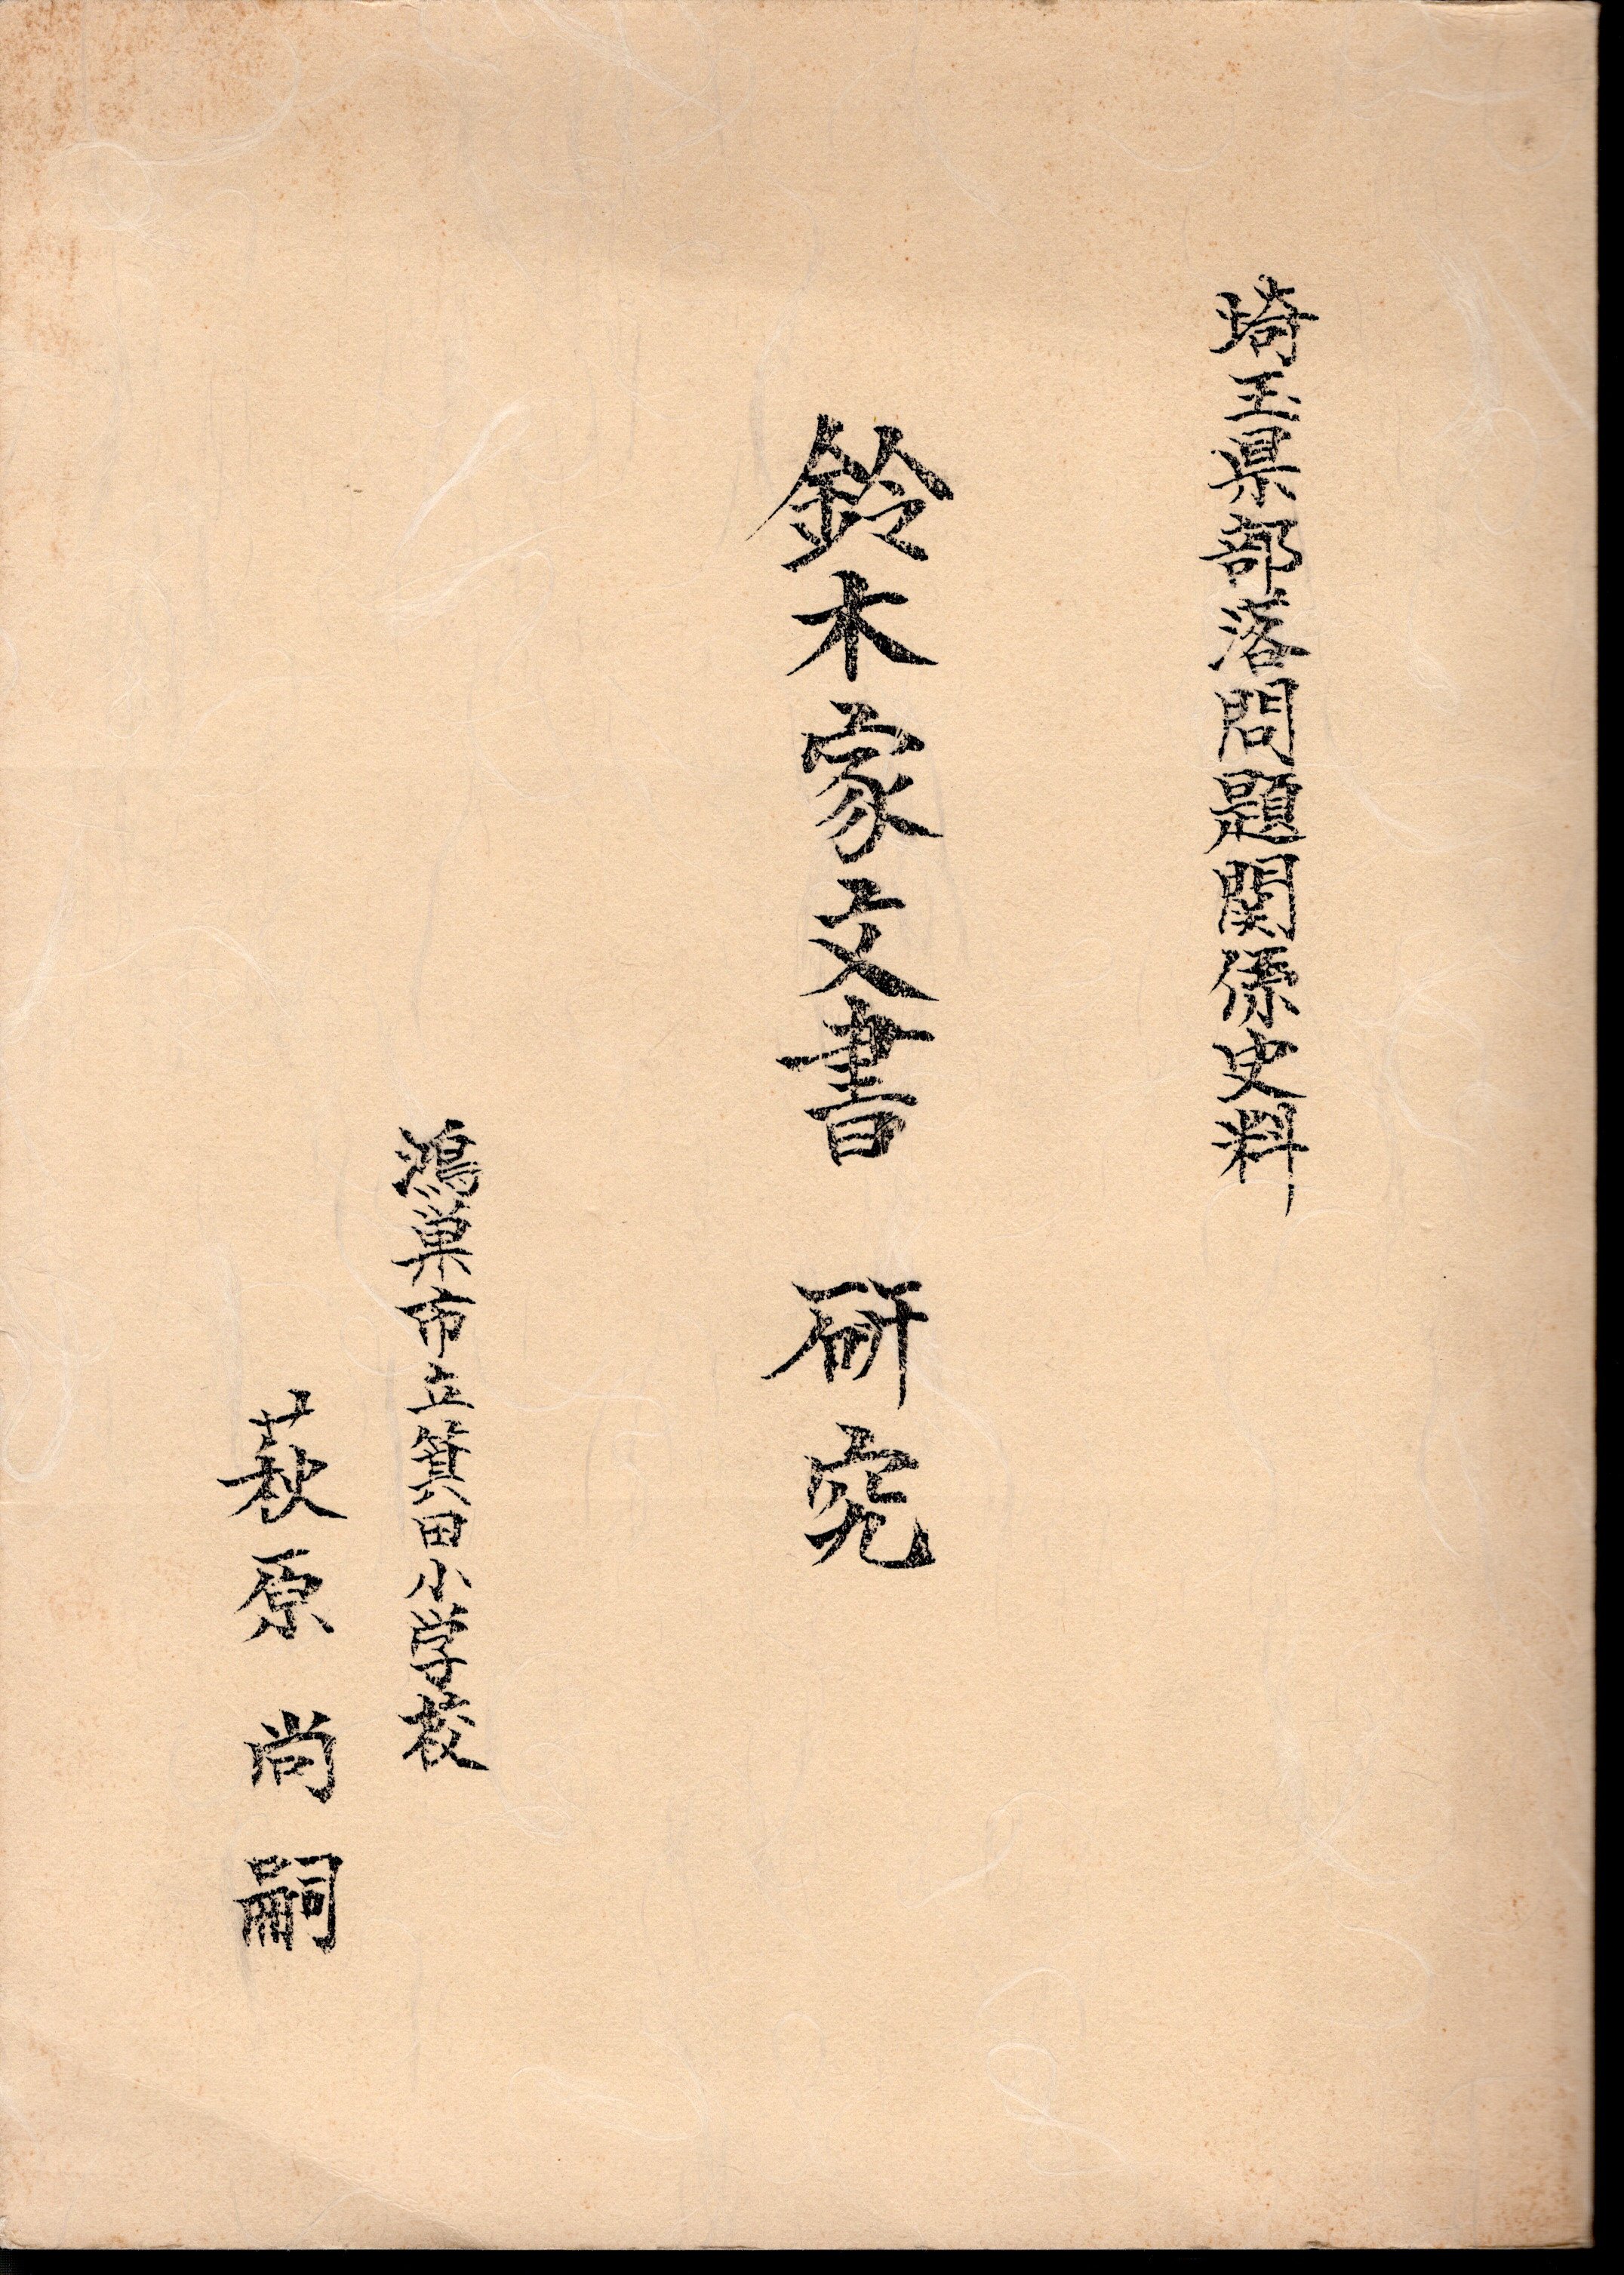 埼玉県部落問題関係史料
鈴木家文書 研究
鴻巣市立箕田小学校
萩原 尚嗣